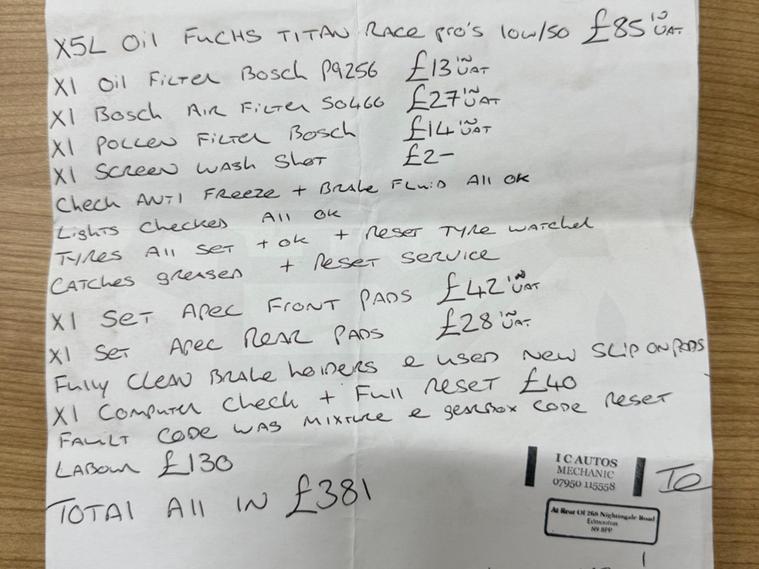 X5L Oil FUCHS TITAN RACE pro's low/so £85 in VAT
X1 Oil Filter Bosch P9256 £13 in VAT
X1 Bosch Air Filter S0466 £27 in VAT
X1 Pollen Filter Bosch £14 in VAT
X1 Screen Wash Shot £2-
Check Anti Freeze + Brake Fluid All OK
Lights Checked All OK
Tyres All Set + OK + Reset Tyre Watched
Catches greased + Reset Service
X1 Set Apec Front Pads £42 in VAT
X1 Set Apec Rear Pads £28 in VAT
Fully Clean Brake holders e used New Slip on Pads
X1 Computer Check + Full Reset £40
Fault Code was Mixture e gearbox code Reset
Labour £130
Total All In £381
I C AUTOS
MECHANIC
07950 115558
At Rear Of 268 Nightingale Road
Edmonton
N9 8PP